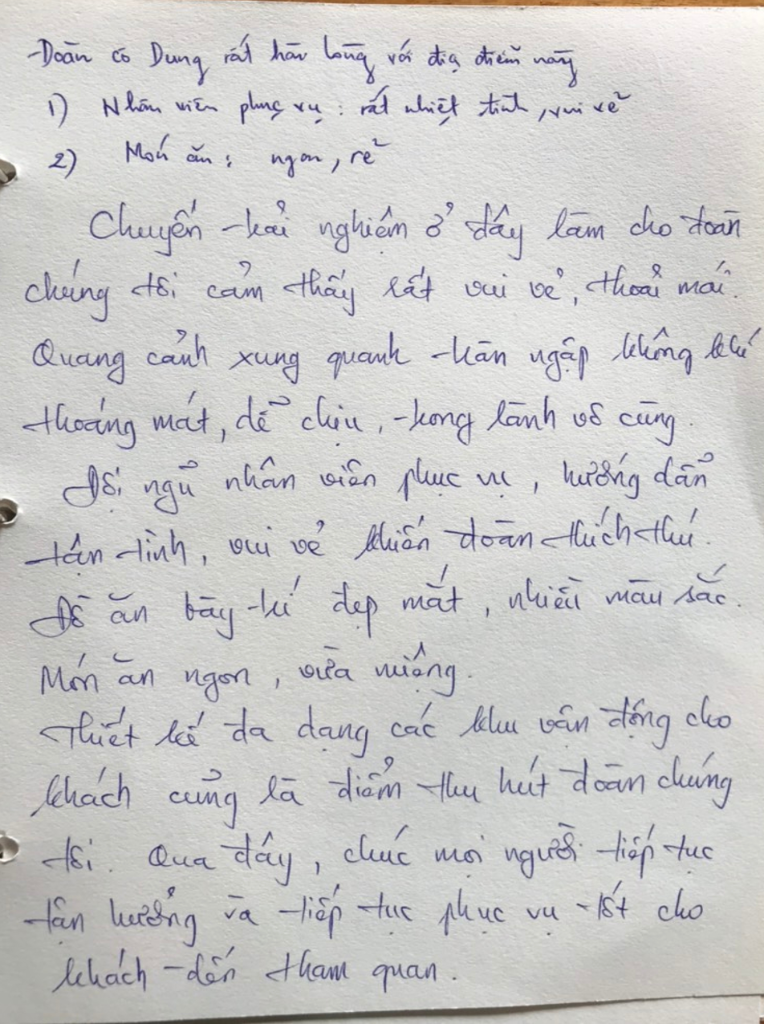 Đoàn cô Dung rất hài lòng với địa điểm này
1) Nhân viên phục vụ: rất nhiệt tình, vui vẻ
2) Món ăn: ngon, rẻ
Chuyến trải nghiệm ở đây làm cho đoàn
chúng tôi cảm thấy rất vui vẻ, thoải mái.
Quang cảnh xung quanh tràn ngập không khí
thoáng mát, dể chịu, trong lành vô cùng.
Đội ngủ nhân viên phục vụ, hướng dẩn
tận tình, vui vẻ khiến đoàn thích thú.
Đồ ăn bày trí đẹp mắt, nhiều màu sắc.
Món ăn ngon, vừa miệng.
Thiết kế đa dạng các khu vận động cho
khách củng là điểm thu hút đoàn chúng
tôi. Qua đây, chúc mọi người tiếp tục
tận hưởng và tiếp tục phục vụ tốt cho
khách đến tham quan.